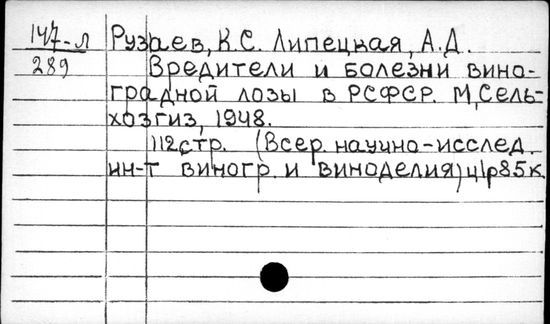 147-л Рузаев, К.С. Липецкая, А.Д.
289 Вредители и болезни вино-
градной лозы в РСФСР. М, Сель-
хозгиз, 1948.
112 стр. (Всер. научно-исслед.
ин-т виногр. и виноделия) ц 1р 85к.